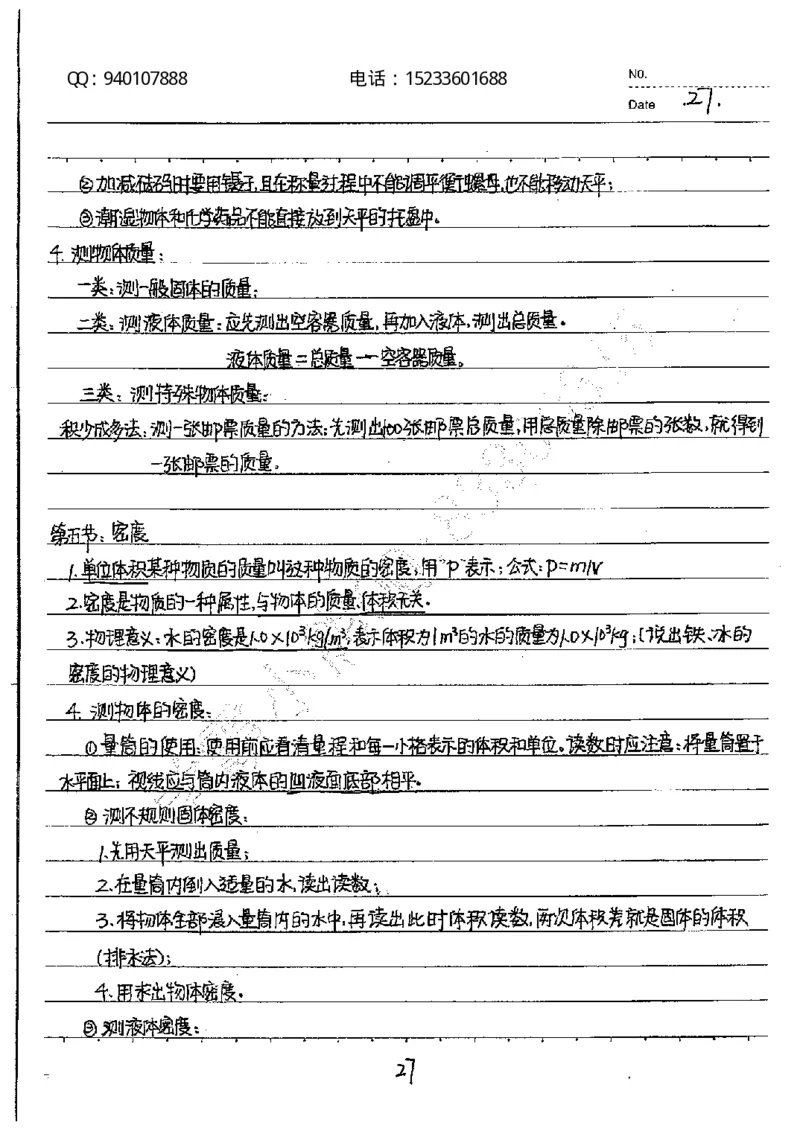 QQ：940107888 电话：15233601688 No.
Date .27.
②加减砝码时要用镊子,且在称量过程中不能调平衡螺母,也不能移动天平;
③潮湿物体和化学药品不能直接放到天平的托盘中.
4. 测物体质量:
一类:测一般固体的质量;
二类:测液体质量:应先测出空容器质量,再加入液体,测出总质量.
液体质量=总质量一空容器质量.
三类:测特殊物体质量:
积少成多法:测一张邮票质量的方法:先测出100张邮票总质量,用总质量除邮票的张数,就得到
一张邮票的质量.
第五节:密度
1.单位体积某种物质的质量叫这种物质的密度,用"ρ"表示;公式:ρ=m/v
2.密度是物质的一种属性,与物体的质量、体积无关.
3.物理意义:水的密度是1.0×10³kg/m³,表示体积为1m³的水的质量为1.0×10³kg;(说出铁、冰的
密度的物理意义)
4. 测物体的密度:
①量筒的使用:使用前应看清量程和每一小格表示的体积和单位.读数时应注意:将量筒置于
水平面上;视线应与筒内液体的凹液面底部相平.
②测不规则固体密度:
1.先用天平测出质量;
2.在量筒内倒入适量的水,读出读数;
3.将物体全部浸入量筒内的水中,再读出此时体积读数,两次体积差就是固体的体积
(排水法);
4.用求出物体密度.
③测液体密度:
27